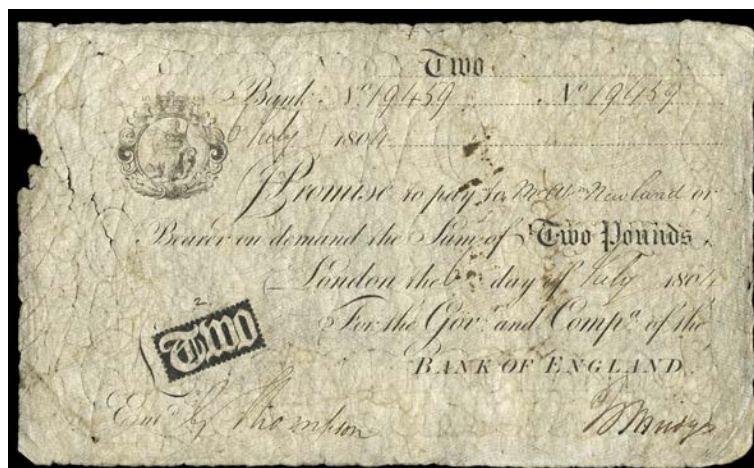 Two
Bank Nº 19459 Nº 19459
6 July 1804
I Promise to pay to Mr. Abm. Newland or
Bearer on demand the Sum of Two Pounds
London the 6 day of July 1804
For the Govr. and Compa. of the
BANK OF ENGLAND.
2
Two
Entd. Thompson